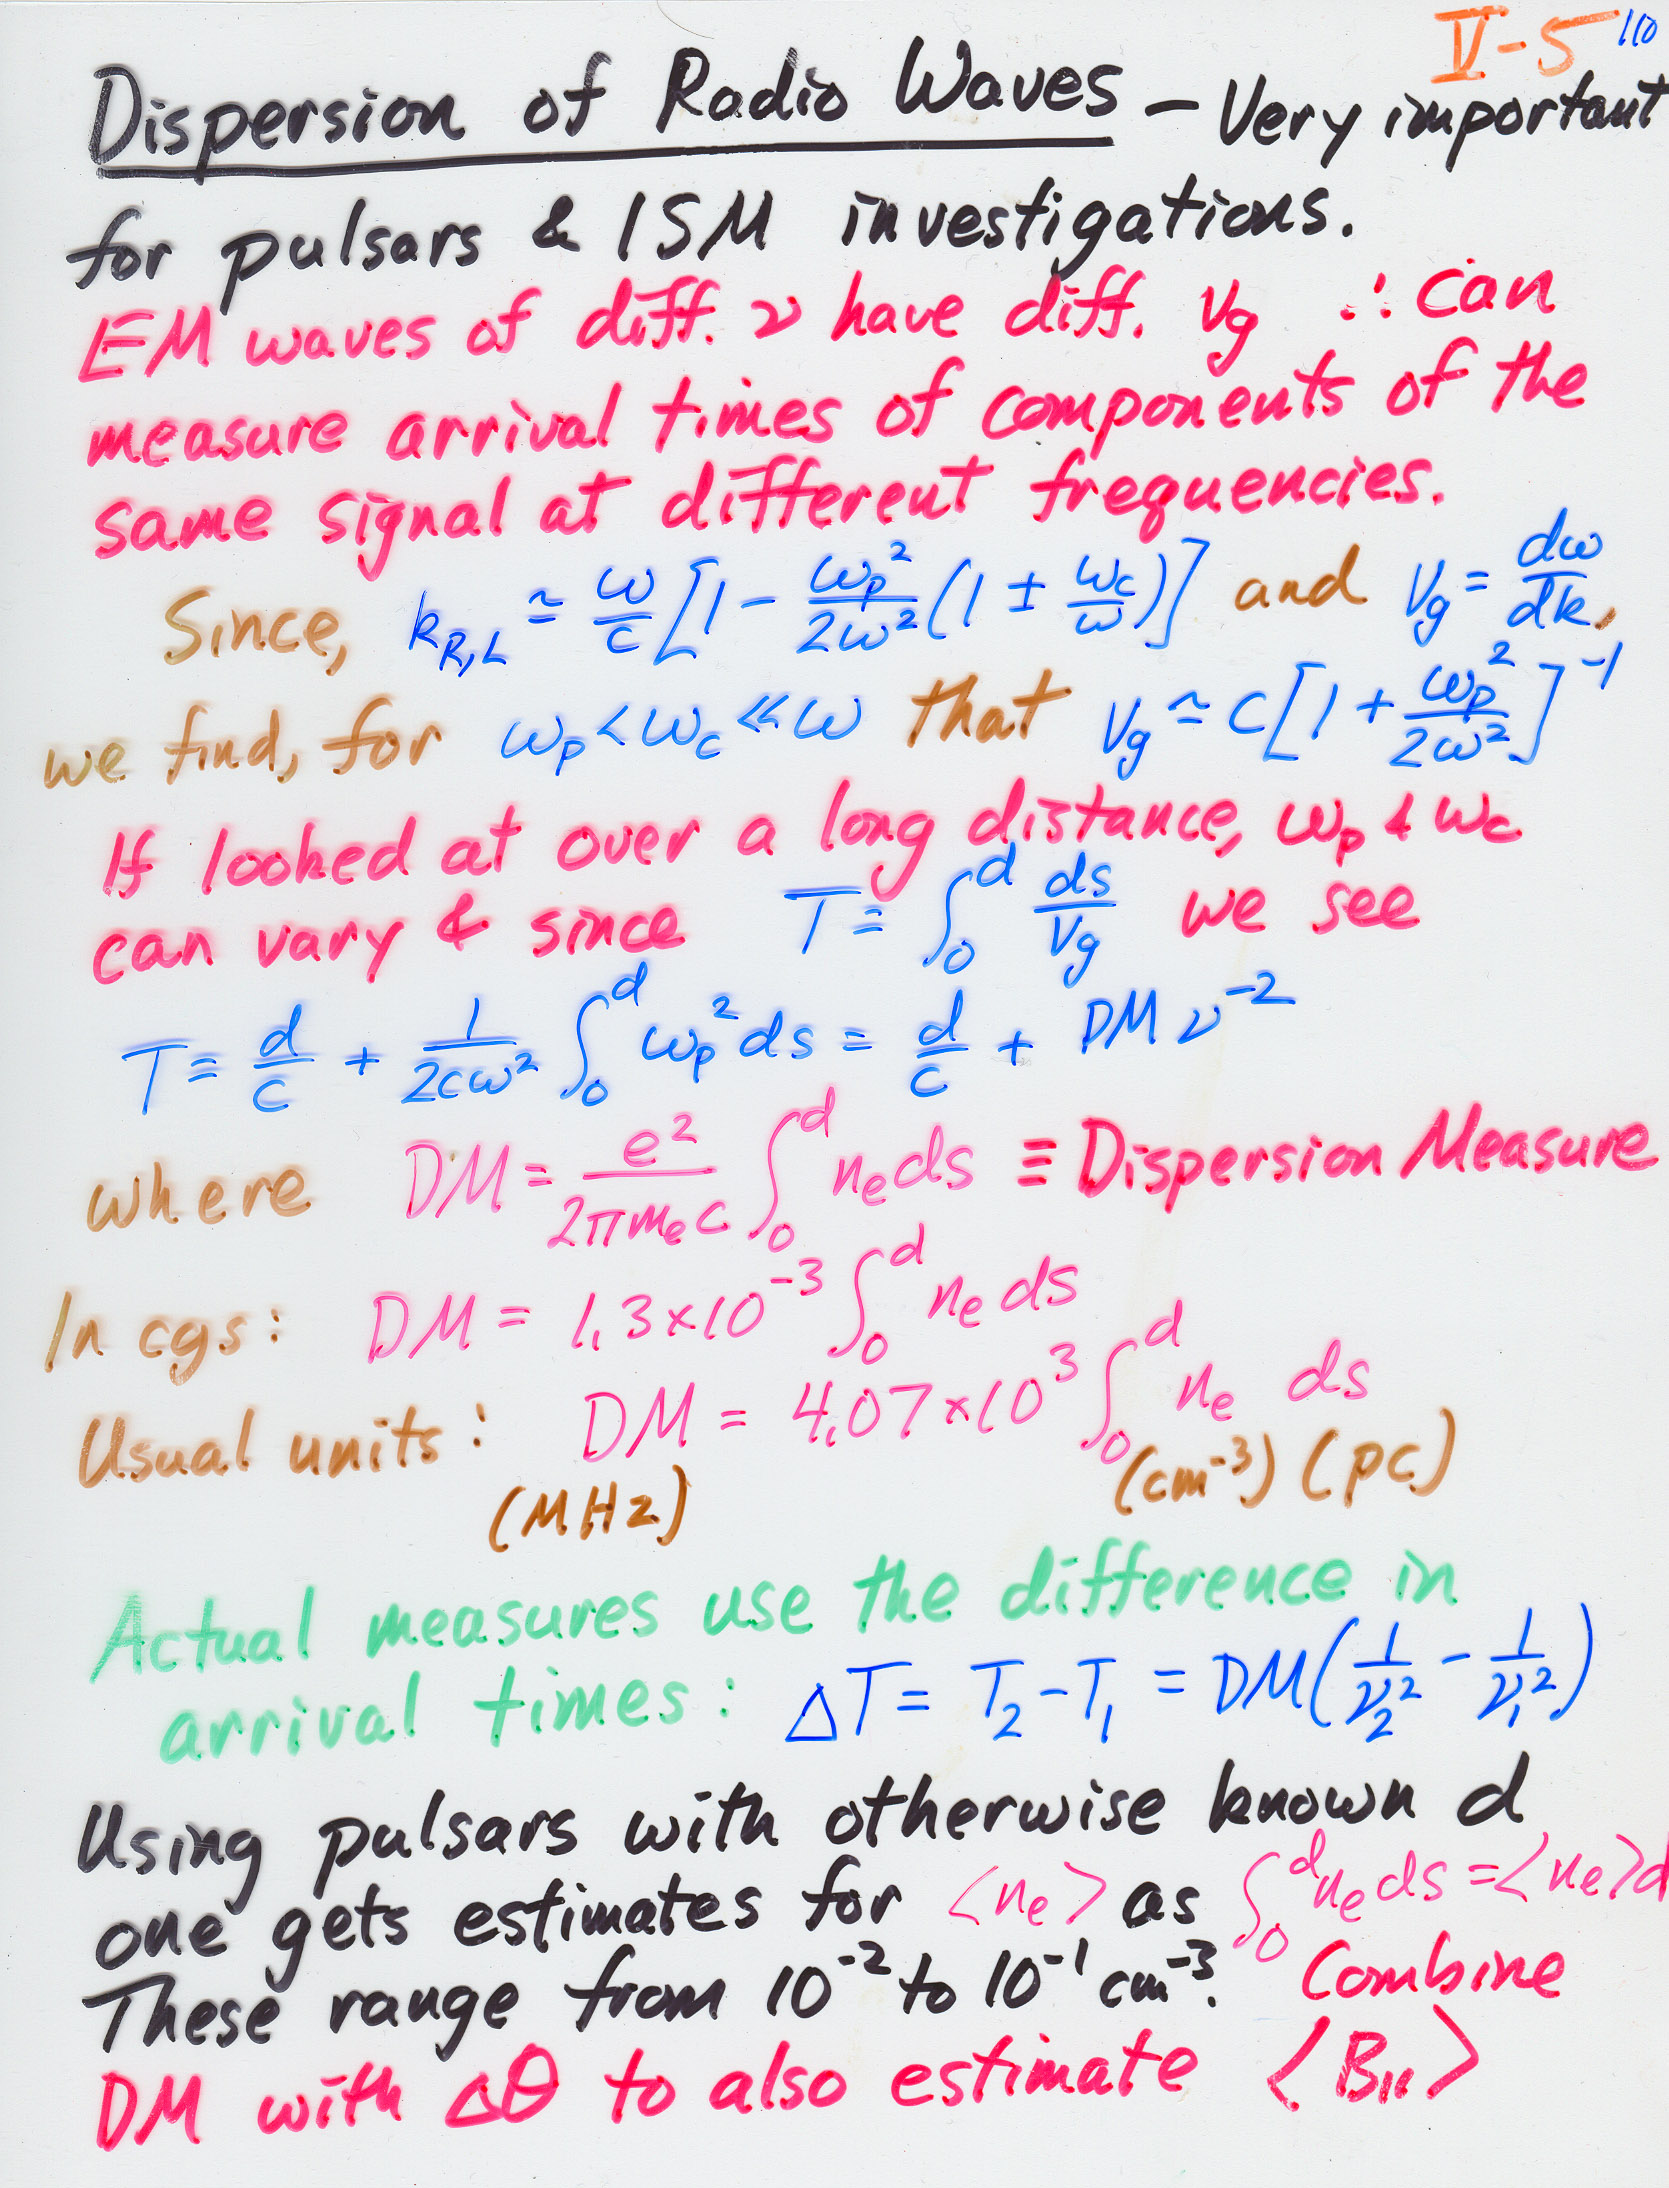 V-5 110
Dispersion of Radio Waves – Very important
for pulsars & ISM investigations.
EM waves of diff. ν have diff. Vg ∴ can
measure arrival times of components of the
same signal at different frequencies.
Since, k_{R,L} ≃ ω/c [1 - ωp²/2ω² (1 ± ωc/ω)] and Vg = dω/dk,
we find, for ωp < ωc ≪ ω that Vg ≃ c[1 + ωp²/2ω²]⁻¹
If looked at over a long distance, ωp & ωc
can vary & since T = ∫₀^d ds/Vg we see
T = d/c + 1/2cω² ∫₀^d ωp² ds = d/c + DM ν⁻²
where DM = e²/2πmₑc ∫₀^d nₑds ≡ Dispersion Measure
In cgs: DM = 1.3×10⁻³ ∫₀^d nₑ ds
Usual units: DM = 4.07×10³ ∫₀^d nₑ ds
(MHz) (cm⁻³) (pc)
Actual measures use the difference in
arrival times: ΔT = T₂-T₁ = DM(1/ν₂² - 1/ν₁²)
Using pulsars with otherwise known d
one gets estimates for <nₑ> as ∫₀^d nₑds = <nₑ>d
These range from 10⁻² to 10⁻¹ cm⁻³. Combine
DM with Δθ to also estimate <B₁₁>